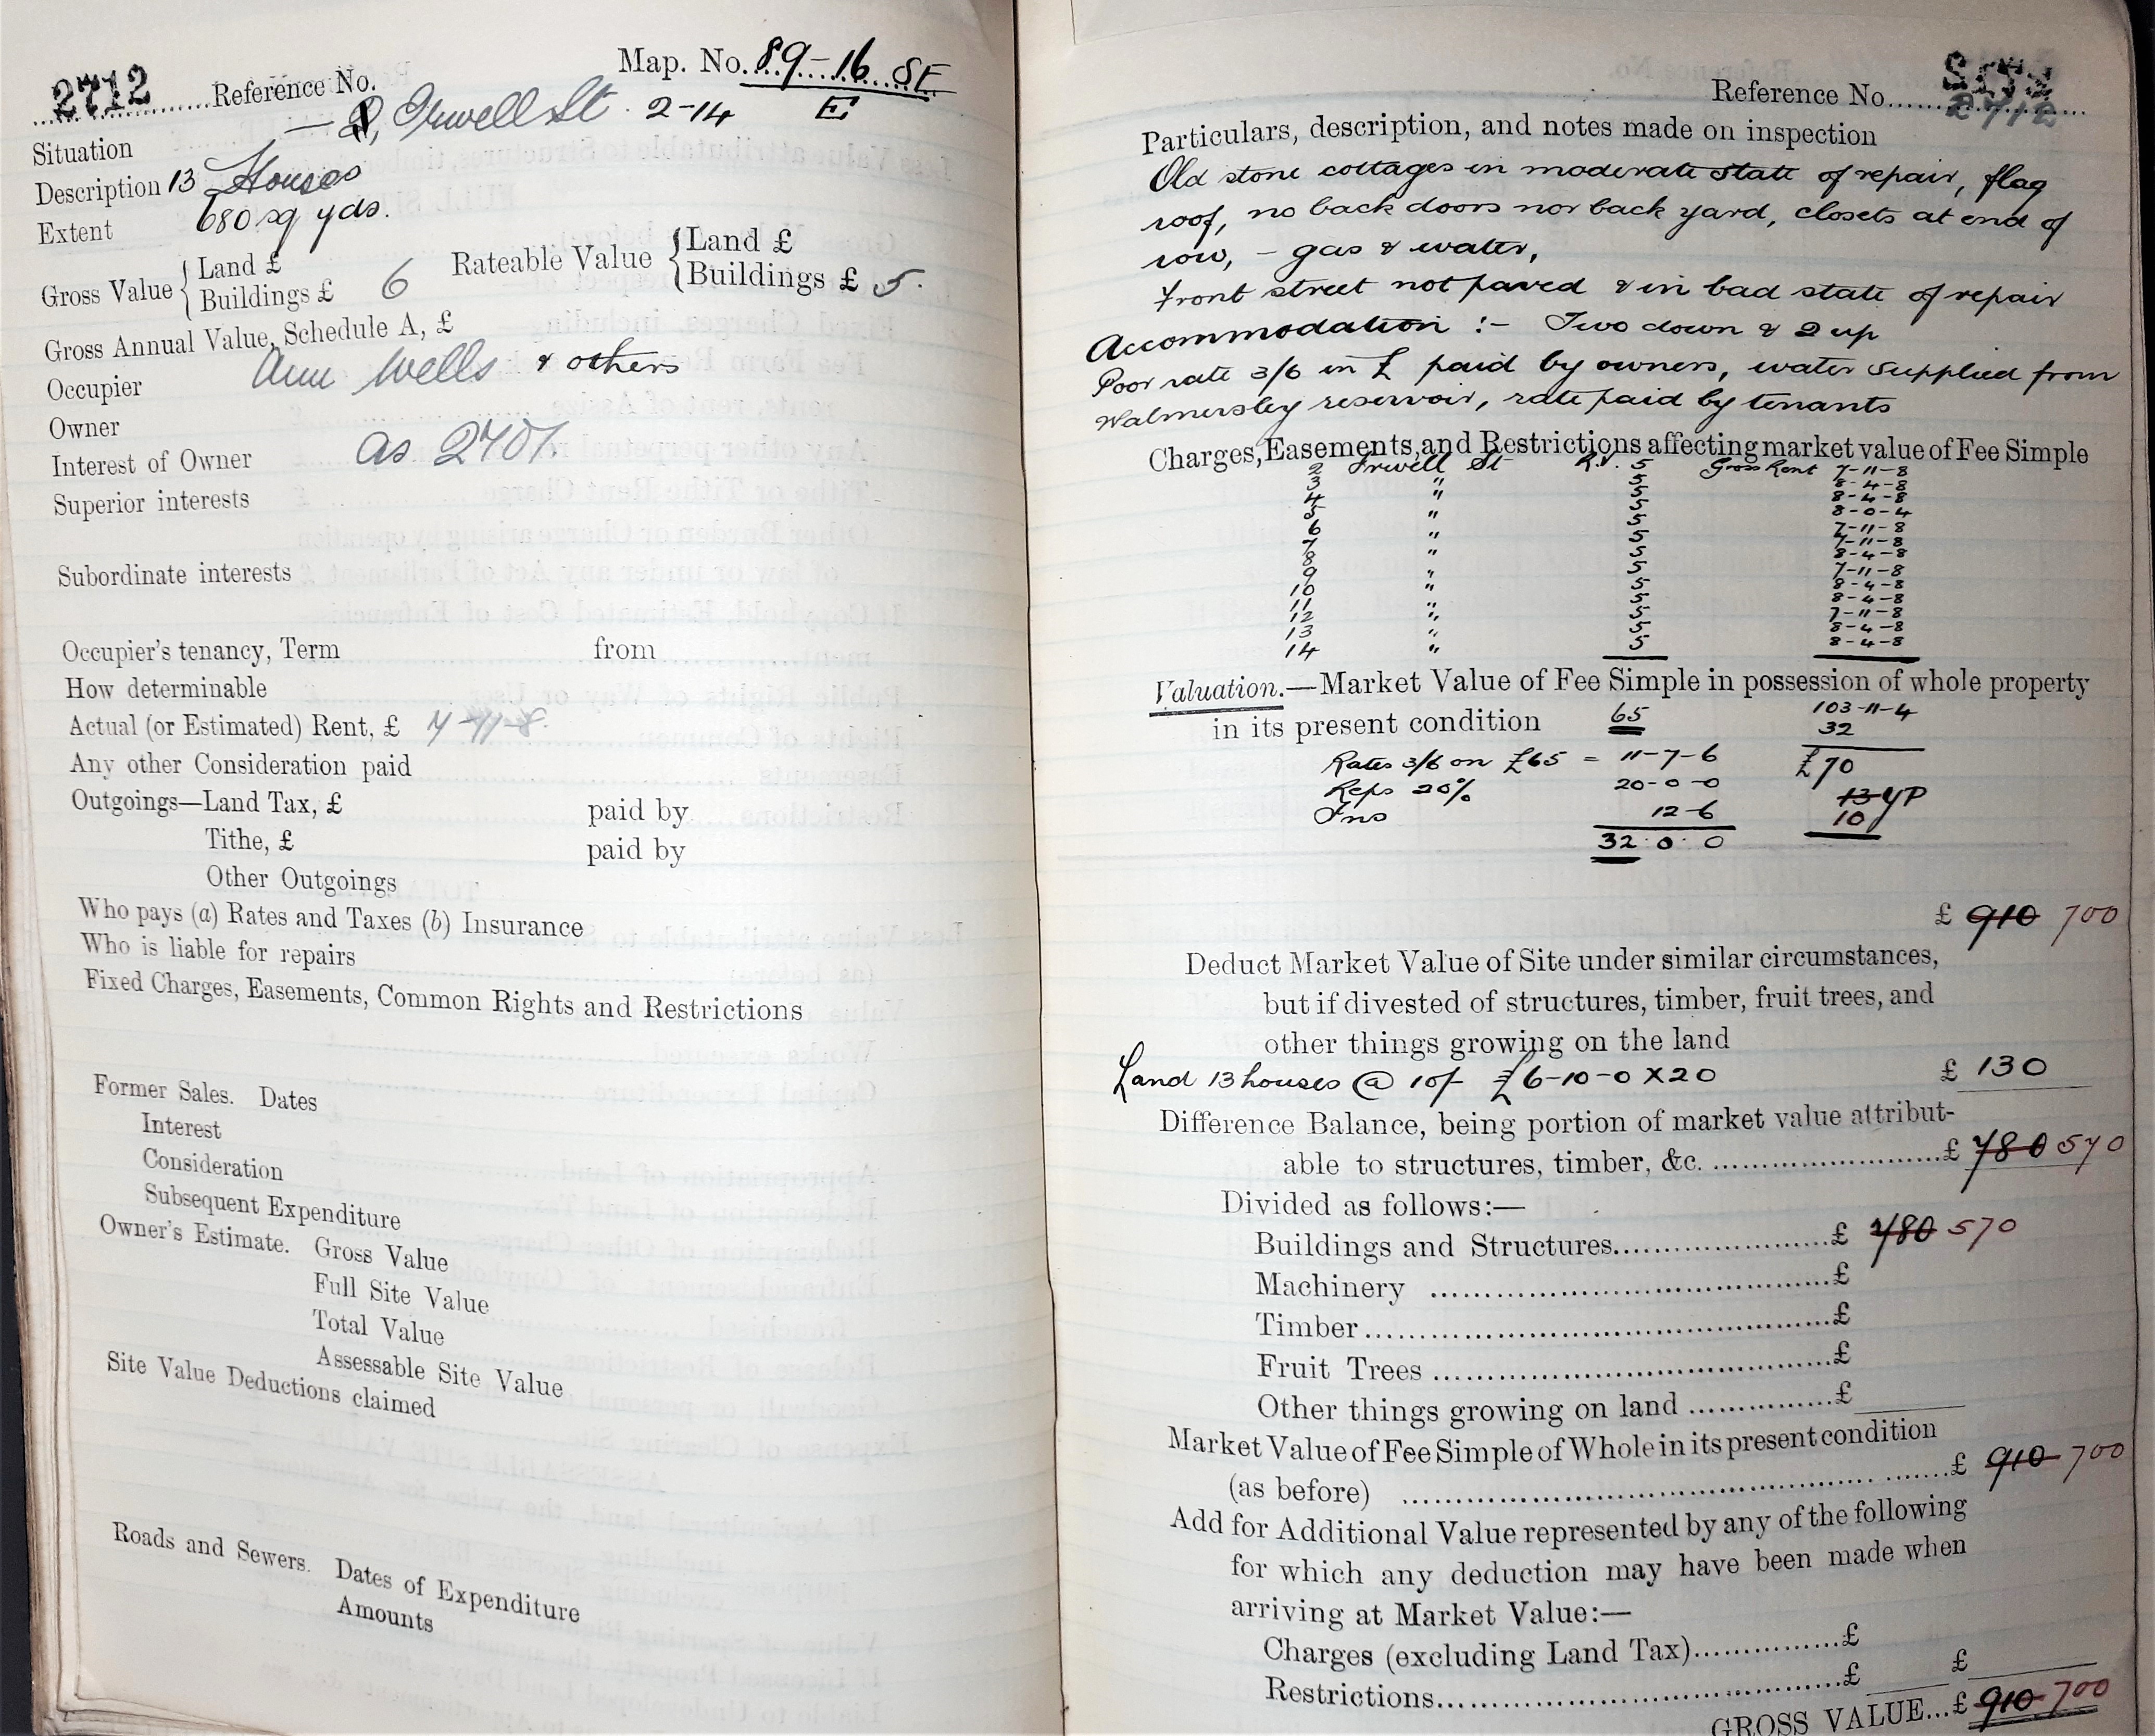 2712 Reference No.
Map. No. 89-16 SE
E
Situation 2, Irwell St. 2-14
Description 13 Houses
Extent 680 sq yds.
Gross Value { Land £
Buildings £ 6
Rateable Value { Land £
Buildings £ 5.
Gross Annual Value, Schedule A, £
Occupier Ann Wells & others
Owner
Interest of Owner as 2701.
Superior interests
Subordinate interests
Occupier's tenancy, Term from
How determinable
Actual (or Estimated) Rent, £ 7-11-8.
Any other Consideration paid
Outgoings—Land Tax, £ paid by
Tithe, £ paid by
Other Outgoings
Who pays (a) Rates and Taxes (b) Insurance
Who is liable for repairs
Fixed Charges, Easements, Common Rights and Restrictions
Former Sales. Dates
Interest
Consideration
Subsequent Expenditure
Owner's Estimate. Gross Value
Full Site Value
Total Value
Assessable Site Value
Site Value Deductions claimed
Roads and Sewers. Dates of Expenditure
Amounts
Reference No. 2712
Particulars, description, and notes made on inspection
Old stone cottages in moderate state of repair, flag
roof, no back doors nor back yard, closets at end of
row, - gas & water,
Front street not paved & in bad state of repair
Accommodation :- Two down & 2 up
Poor rate 3/6 in £ paid by owners, water supplied from
Walmersley reservoir, rate paid by tenants
Charges, Easements, and Restrictions affecting market value of Fee Simple
2 Irwell St R.V. 5 Gross Rent 7-11-8
3 " 5 8-4-8
4 " 5 8-4-8
5 " 5 8-0-4
6 " 5 7-11-8
7 " 5 7-11-8
8 " 5 8-4-8
9 " 5 7-11-8
10 " 5 8-4-8
11 " 5 8-4-8
12 " 5 7-11-8
13 " 5 8-4-8
14 " 5 8-4-8
Valuation.—Market Value of Fee Simple in possession of whole property
in its present condition 65 103-11-4
32
Rates 3/6 on £65 = 11-7-6 £70
Reps 20% 20-0-0 13 YP
Ins 12-6 10
32.0.0
£ 910 700
Deduct Market Value of Site under similar circumstances,
but if divested of structures, timber, fruit trees, and
other things growing on the land
Land 13 houses @ 10/- £6-10-0 X 20 £ 130
Difference Balance, being portion of market value attribut-
able to structures, timber, &c. £ 780 570
Divided as follows:—
Buildings and Structures £ 780 570
Machinery £
Timber £
Fruit Trees £
Other things growing on land £
Market Value of Fee Simple of Whole in its present condition
(as before) £ 910 700
Add for Additional Value represented by any of the following
for which any deduction may have been made when
arriving at Market Value:—
Charges (excluding Land Tax) £
Restrictions £ £
GROSS VALUE...£ 910 700